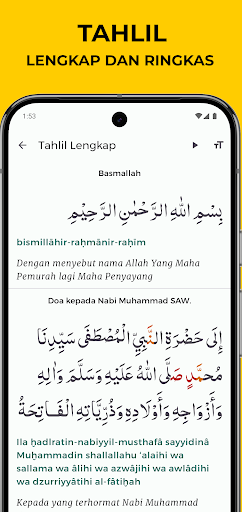 TAHLIL
LENGKAP DAN RINGKAS
1:53
Tahlil Lengkap
Basmallah
بِسْمِ اللهِ الرَّحْمٰنِ الرَّحِيْمِ
bismillâhir-raḫmânir-raḫîm
Dengan menyebut nama Allah Yang Maha
Pemurah lagi Maha Penyayang
Doa kepada Nabi Muhammad SAW.
إِلَى حَضْرَةِ النَّبِيِّ الْمُصْطَفَى سَيِّدِنَا
مُحَمَّدٍ صَلَّى اللهُ عَلَيْهِ وَسَلَّمَ وَاٰلِهِ
وَأَزْوَاجِهِ وَأَوْلَادِهِ وَذُرِّيَّاتِهِ الْفَاتِحَةُ
Ila ḫadlratin-nabiyyil-musthafâ sayyidinâ
Muḫammadin shallallahu 'alaihi wa
sallama wa âlihi wa azwâjihi wa awlâdihi
wa dzurriyyâtihi al-fâtiḫah
Kepada yang terhormat Nabi Muhammad